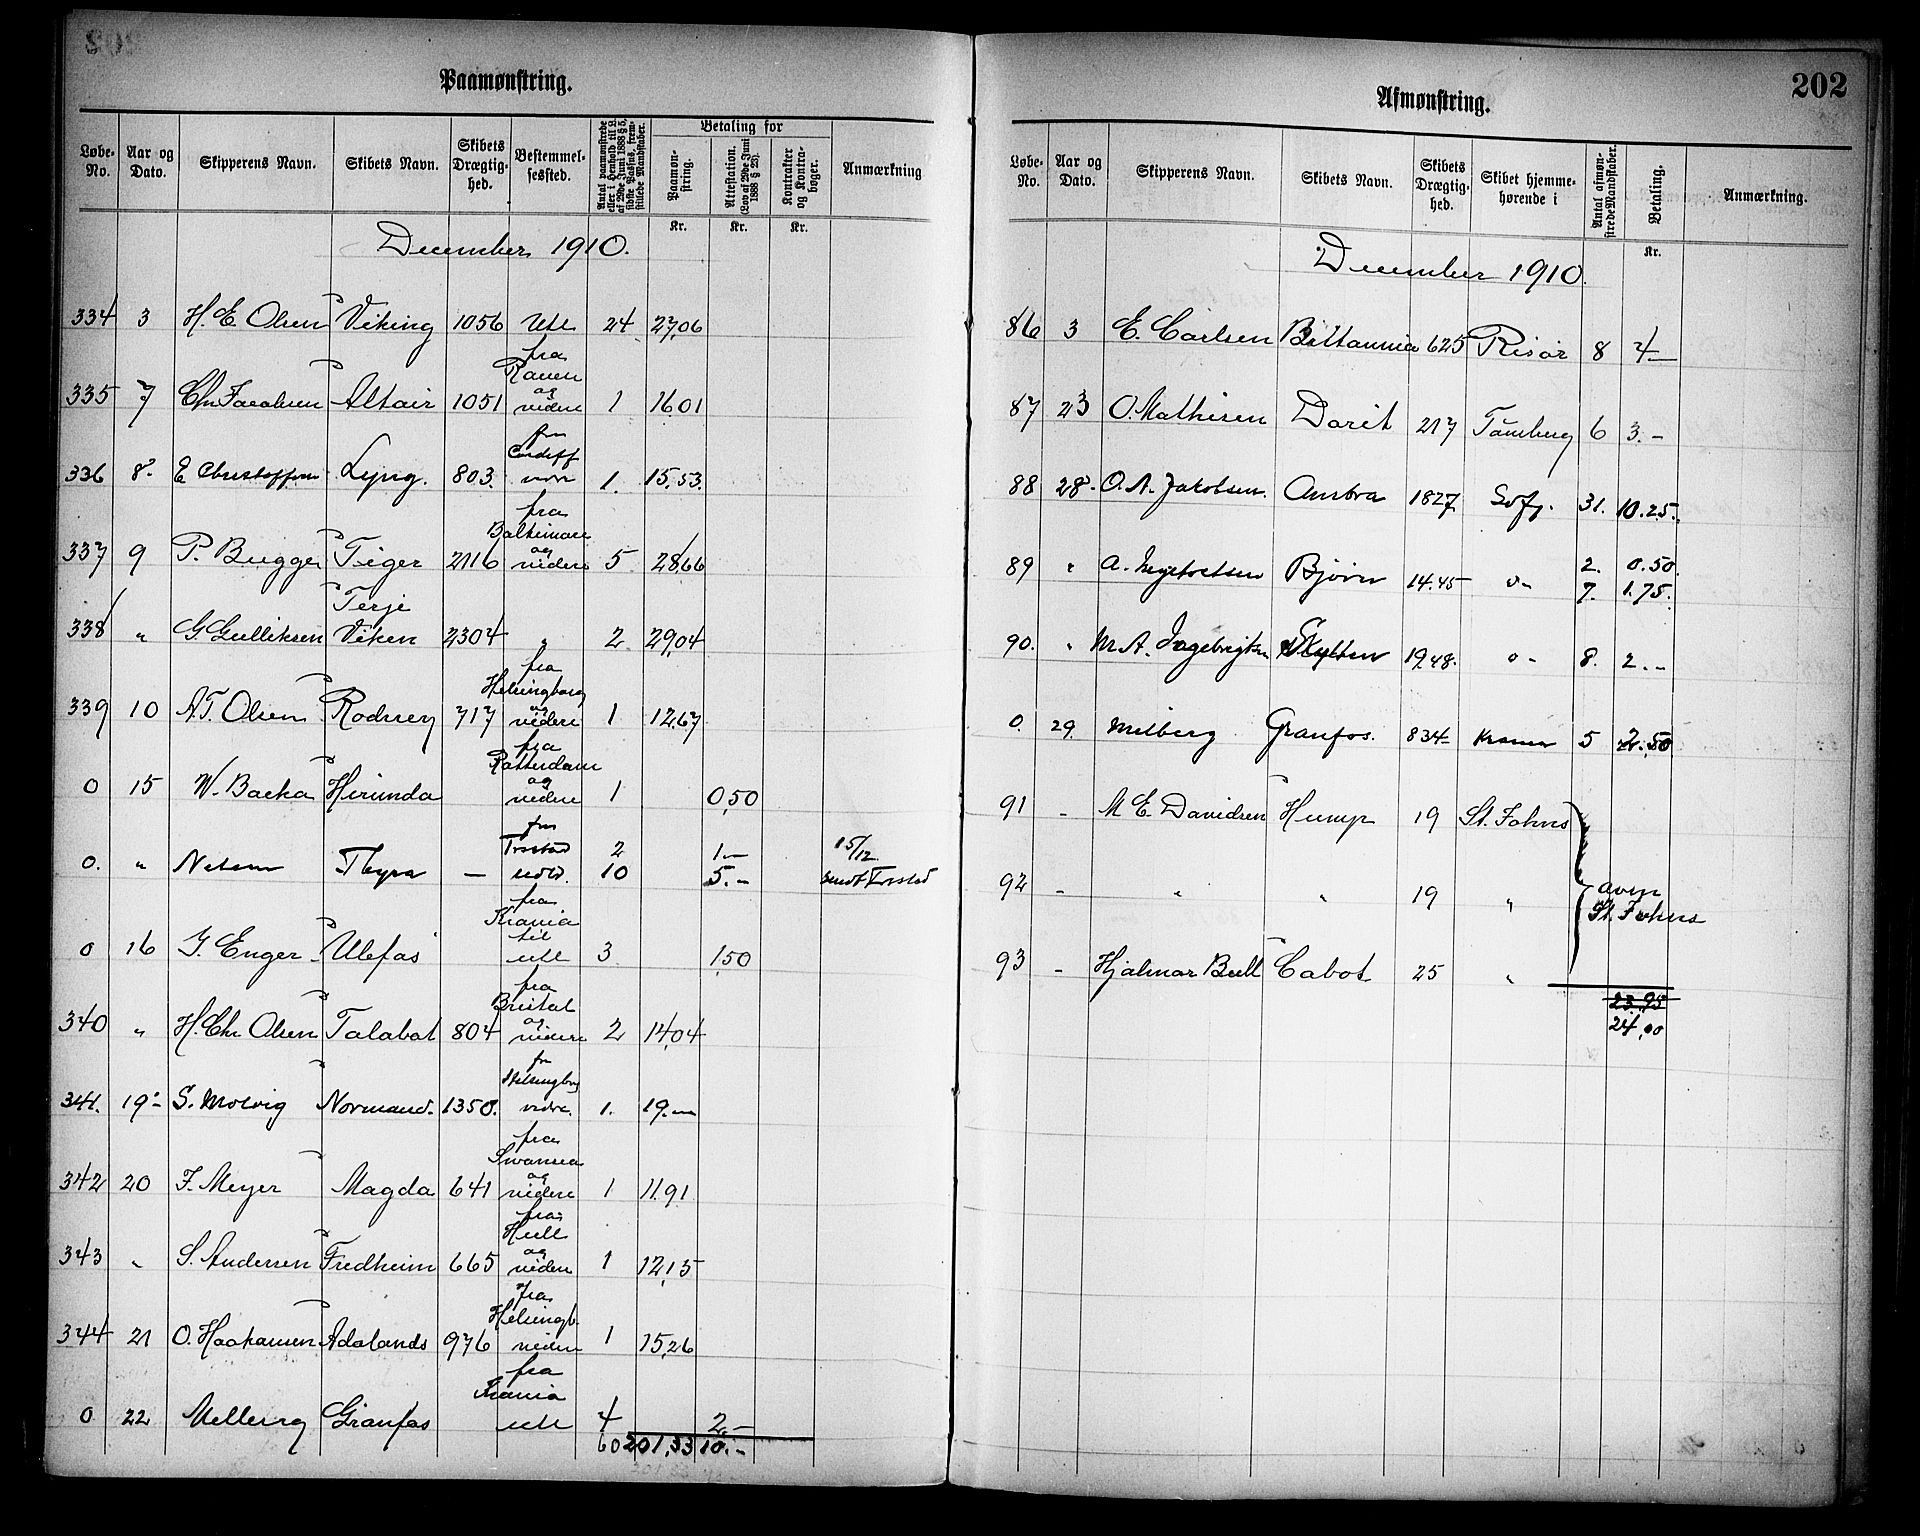 Paamønstring.
Løbe-No. | Aar og Dato. | Skipperens Navn. | Skibets Navn. | Skibets Drægtighed. | Bestemmelsessted. | Antal paamønstrede eller i Henhold til L. af 29de Juni 1888 § 5, sidste Passus, fremstillede Mandskaber. | Betaling for | Anmærkning
Paamønstring. | Attestation. (Lov af 29de Juni 1888 § 23). | Kontrakter og Kontrabøger.
Kr. | Kr. | Kr.
December 1910.
334 | 3 | H. E. Olsen | Viking | 1056 | Utl | 24 | 27,06
335 | 7 | Chr Jacobsen | Altair | 1051 | fra Rouen og videre | 1 | 16,01
336 | 8. | E Christoffersen | Lyng. | 803. | fra Cardiff vidre | 1. | 15,53.
337 | 9 | P. Bugge | Tiger | 2116 | fra Baltimore og videre | 5 | 28,66
338 | " | G. Gulliksen | Terje Viken | 2304 | " | 2 | 29,04
339 | 10 | A.T. Olsen | Rodney | 717 | fra Helsingborg og videre | 1 | 12,67
0 | 15 | W. Backa | Hirunda | fra Rotterdam og videre | 1 | 0,50
0. | " | Nelson | Thyra | – | fra Trostad udld. | 2 | 1.–
10 | 5.– | 15/12 sendt Trostad
0 | 16 | J. Enger | Ulefos | fra Krania til utl | 3 | 1,50
340 | " | H. Chr Olsen | Talabot | 804 | fra Bristol og videre | 2 | 14,04
341. | 19.– | S. Molvig | Normand. | 1350. | fr Helsingborg vidre. | 1. | 19.–
342 | 20 | F. Meyer | Magda | 641 | fra Swansea og videre | 1 | 11,91
343 | " | S. Andersen | Fredheim | 665 | fra Hull og videre | 1 | 12,15
344 | 21 | O. Haakansen | Adalands | 976 | fra Helsingb. videre | 1 | 15,26
0 | 22 | Melberg | Granfos | fra Krania utl | 4 | 2.–
60 | 201,33 | 10.–
202
Afmønstring.
Løbe-No. | Aar og Dato. | Skipperens Navn. | Skibets Navn. | Skibets Drægtighed. | Skibet hjemmehørende i | Antal afmønstrede Mandskaber. | Betaling. | Anmærkning.
Kr.
December 1910.
86 | 3 | E. Carlsen | Brittannia | 625 | Risør | 8 | 4–
87 | 23 | O. Mathisen | Dorit | 217 | Tønsberg | 6 | 3.–
88 | 28. | O. A. Jakobsen. | Ambra | 1827 | Sdfj. | 31. | 10.25.
89 | " | A. | Bjørn | 14.45 | o– | 2. | 0.50.
7. | 1.75.
90. | " | M. A. Ingebrigtsen | 1948. | o– | 8. | 2.–
0. | 29. | Milberg | Granfos. | 834– | Krania | 5 | 2,50
91 | – | M E. Davidsen | Hump | 19 | St. Johns
92 | – | " | " | 19 | "
St. Johns
93 | – | Hjalmar Bull | Cabot | 25 | "
23,95
24,00